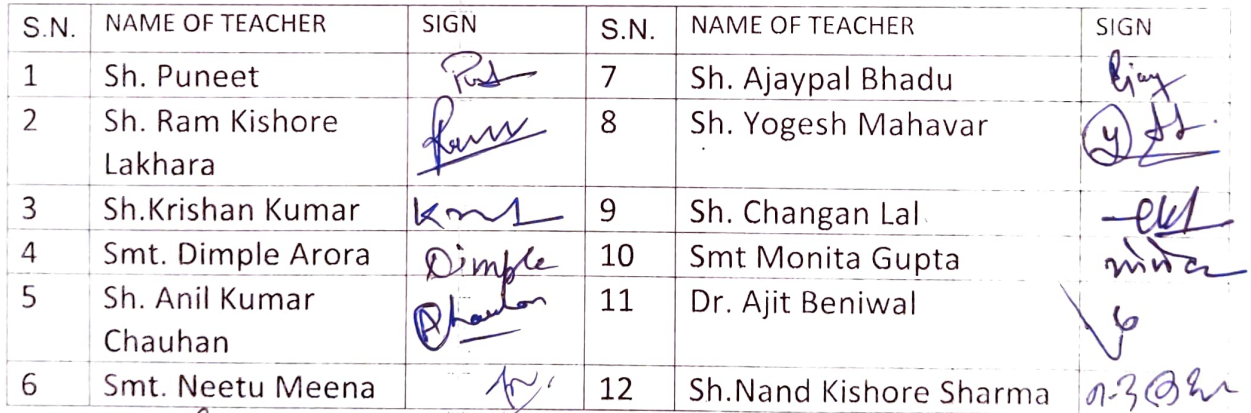 S.N. NAME OF TEACHER SIGN S.N. NAME OF TEACHER SIGN
1 Sh. Puneet 7 Sh. Ajaypal Bhadu Ajay
2 Sh. Ram Kishore 8 Sh. Yogesh Mahavar
Lakhara
3 Sh.Krishan Kumar 9 Sh. Changan Lal
4 Smt. Dimple Arora Dimple 10 Smt Monita Gupta
5 Sh. Anil Kumar AChauhan 11 Dr. Ajit Beniwal
Chauhan
6 Smt. Neetu Meena 12 Sh.Nand Kishore Sharma